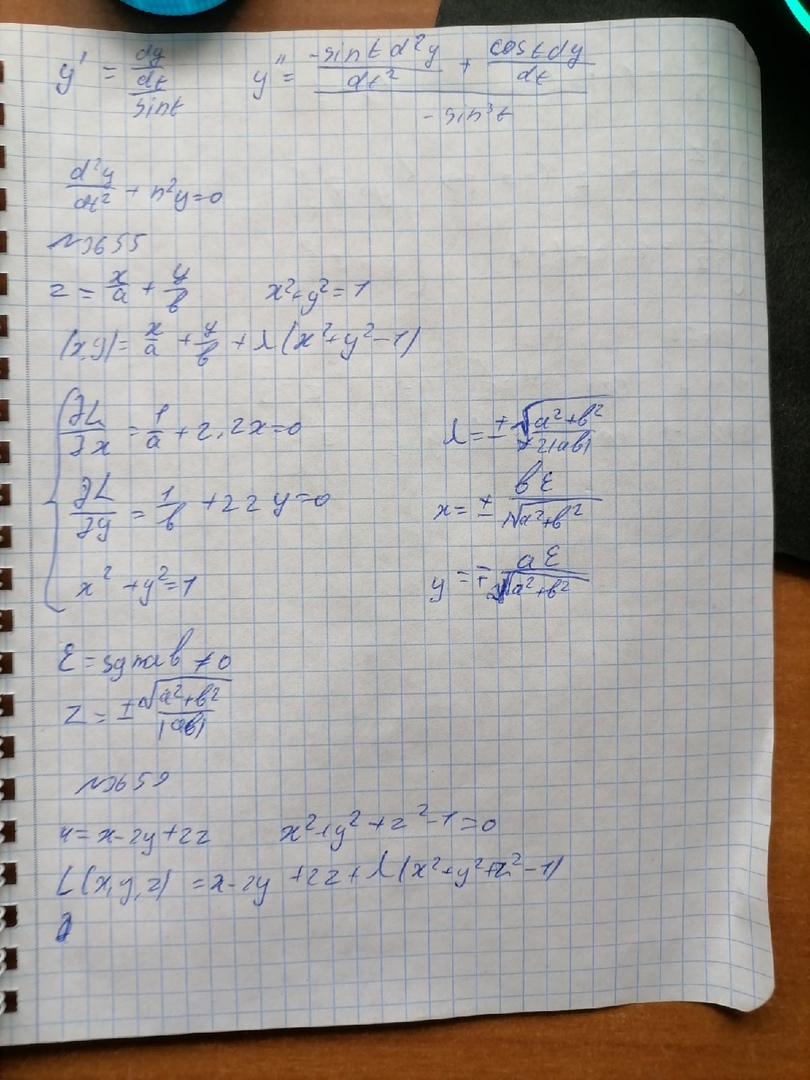 y' = dy/dt / sint    y'' = (-sint d²y/dt² + cost dy/dt) / -sin³t
d²y/dt² + n²y=0
№3655
z = x/a + y/b    x²+y²=1
(x,y)= x/a + y/b + λ(x²+y²-1)
∂L/∂x = 1/a + 2, 2x=0    λ = ± √a²+b² / 2|ab|
∂L/∂y = 1/b + 22 y=0    x = ± bε / √a²+b²
x² + y²=1    y = ∓ aε / √a²+b²
ε = sgn ab ≠ 0
z = ± √a²+b² / |ab|
№3659
u= x-2y+2z    x²+y²+z²-1=0
L(x,y,z) = x-2y +2z+λ(x²+y²+z²-1)